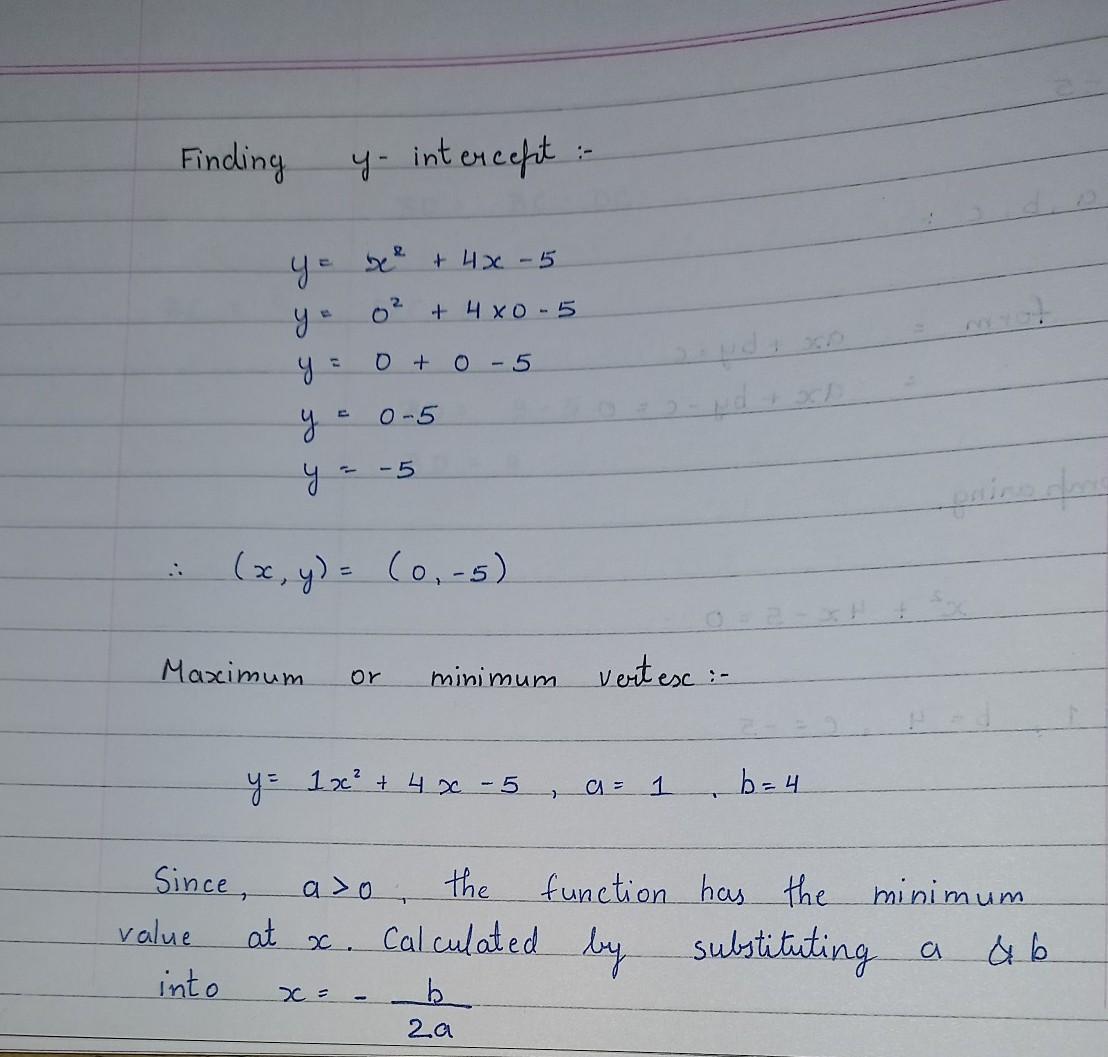 Finding y- intercept :-
y = x² + 4x - 5
y = 0² + 4 x 0 - 5
y = 0 + 0 - 5
y = 0 - 5
y = -5
∴ (x, y) = (0, -5)
Maximum or minimum vertex :-
y = 1x² + 4x - 5 , a = 1 , b = 4
Since, a > 0 , the function has the minimum
value at x. Calculated by substituting a & b
into x = - b
2a